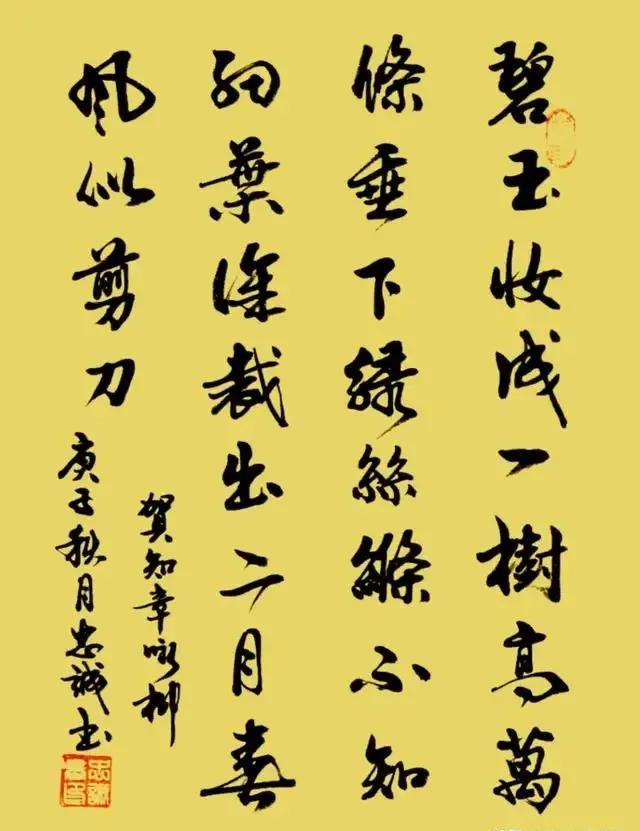 碧玉妆成一樹高萬
條垂下绿絲絛不知
细葉谁裁出二月春
风似剪刀
賀知章咏柳
庚子秋月忠誠书